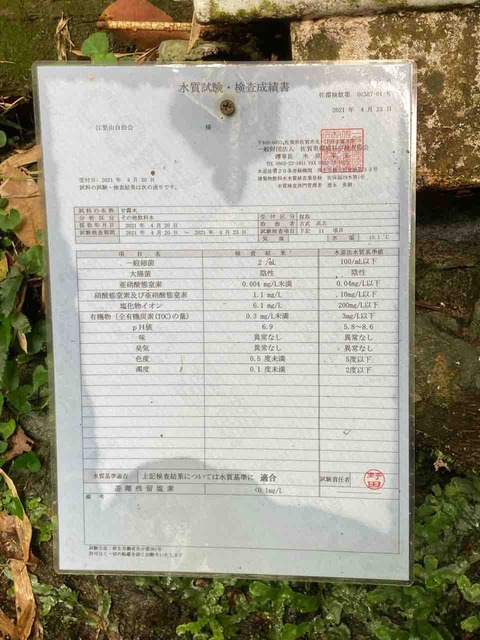 水質試験・検査成績書
佐環検飲第 00387-01号
2021年 4月 23日
江里山自治会 様
一般財団法人 佐賀県環境科学検査協会
理事長
受付日: 2021年 4月 20日
試料の試験・検査結果は次の通りです。
試料の名称 甘露水
分析区分 その他飲料水 受付区分 採取
採取年月日 2021年 4月 20日 採取者
試験検査期間 2021年 4月 20日 ～ 2021年 4月 23日 試験検査項目 下記 11 項目
気温 水温
項目 検査結果 水道法水質基準値
一般細菌 2 /mL 100/mL以下
大腸菌 陰性 陰性
亜硝酸態窒素 0.004 mg/L未満 0.04mg/L以下
硝酸態窒素及び亜硝酸態窒素 1.1 mg/L 10mg/L以下
塩化物イオン 6.1 mg/L 200mg/L以下
有機物(全有機炭素(TOC)の量) 0.3 mg/L未満 3mg/L以下
pH値 6.9 5.8～8.6
味 異常なし 異常なし
臭気 異常なし 異常なし
色度 0.5 度未満 5度以下
濁度 0.1 度未満 2度以下
水質基準適否 上記検査結果については水質基準に 適合 試験責任者 野田
遊離残留塩素 <0.1mg/L
備考